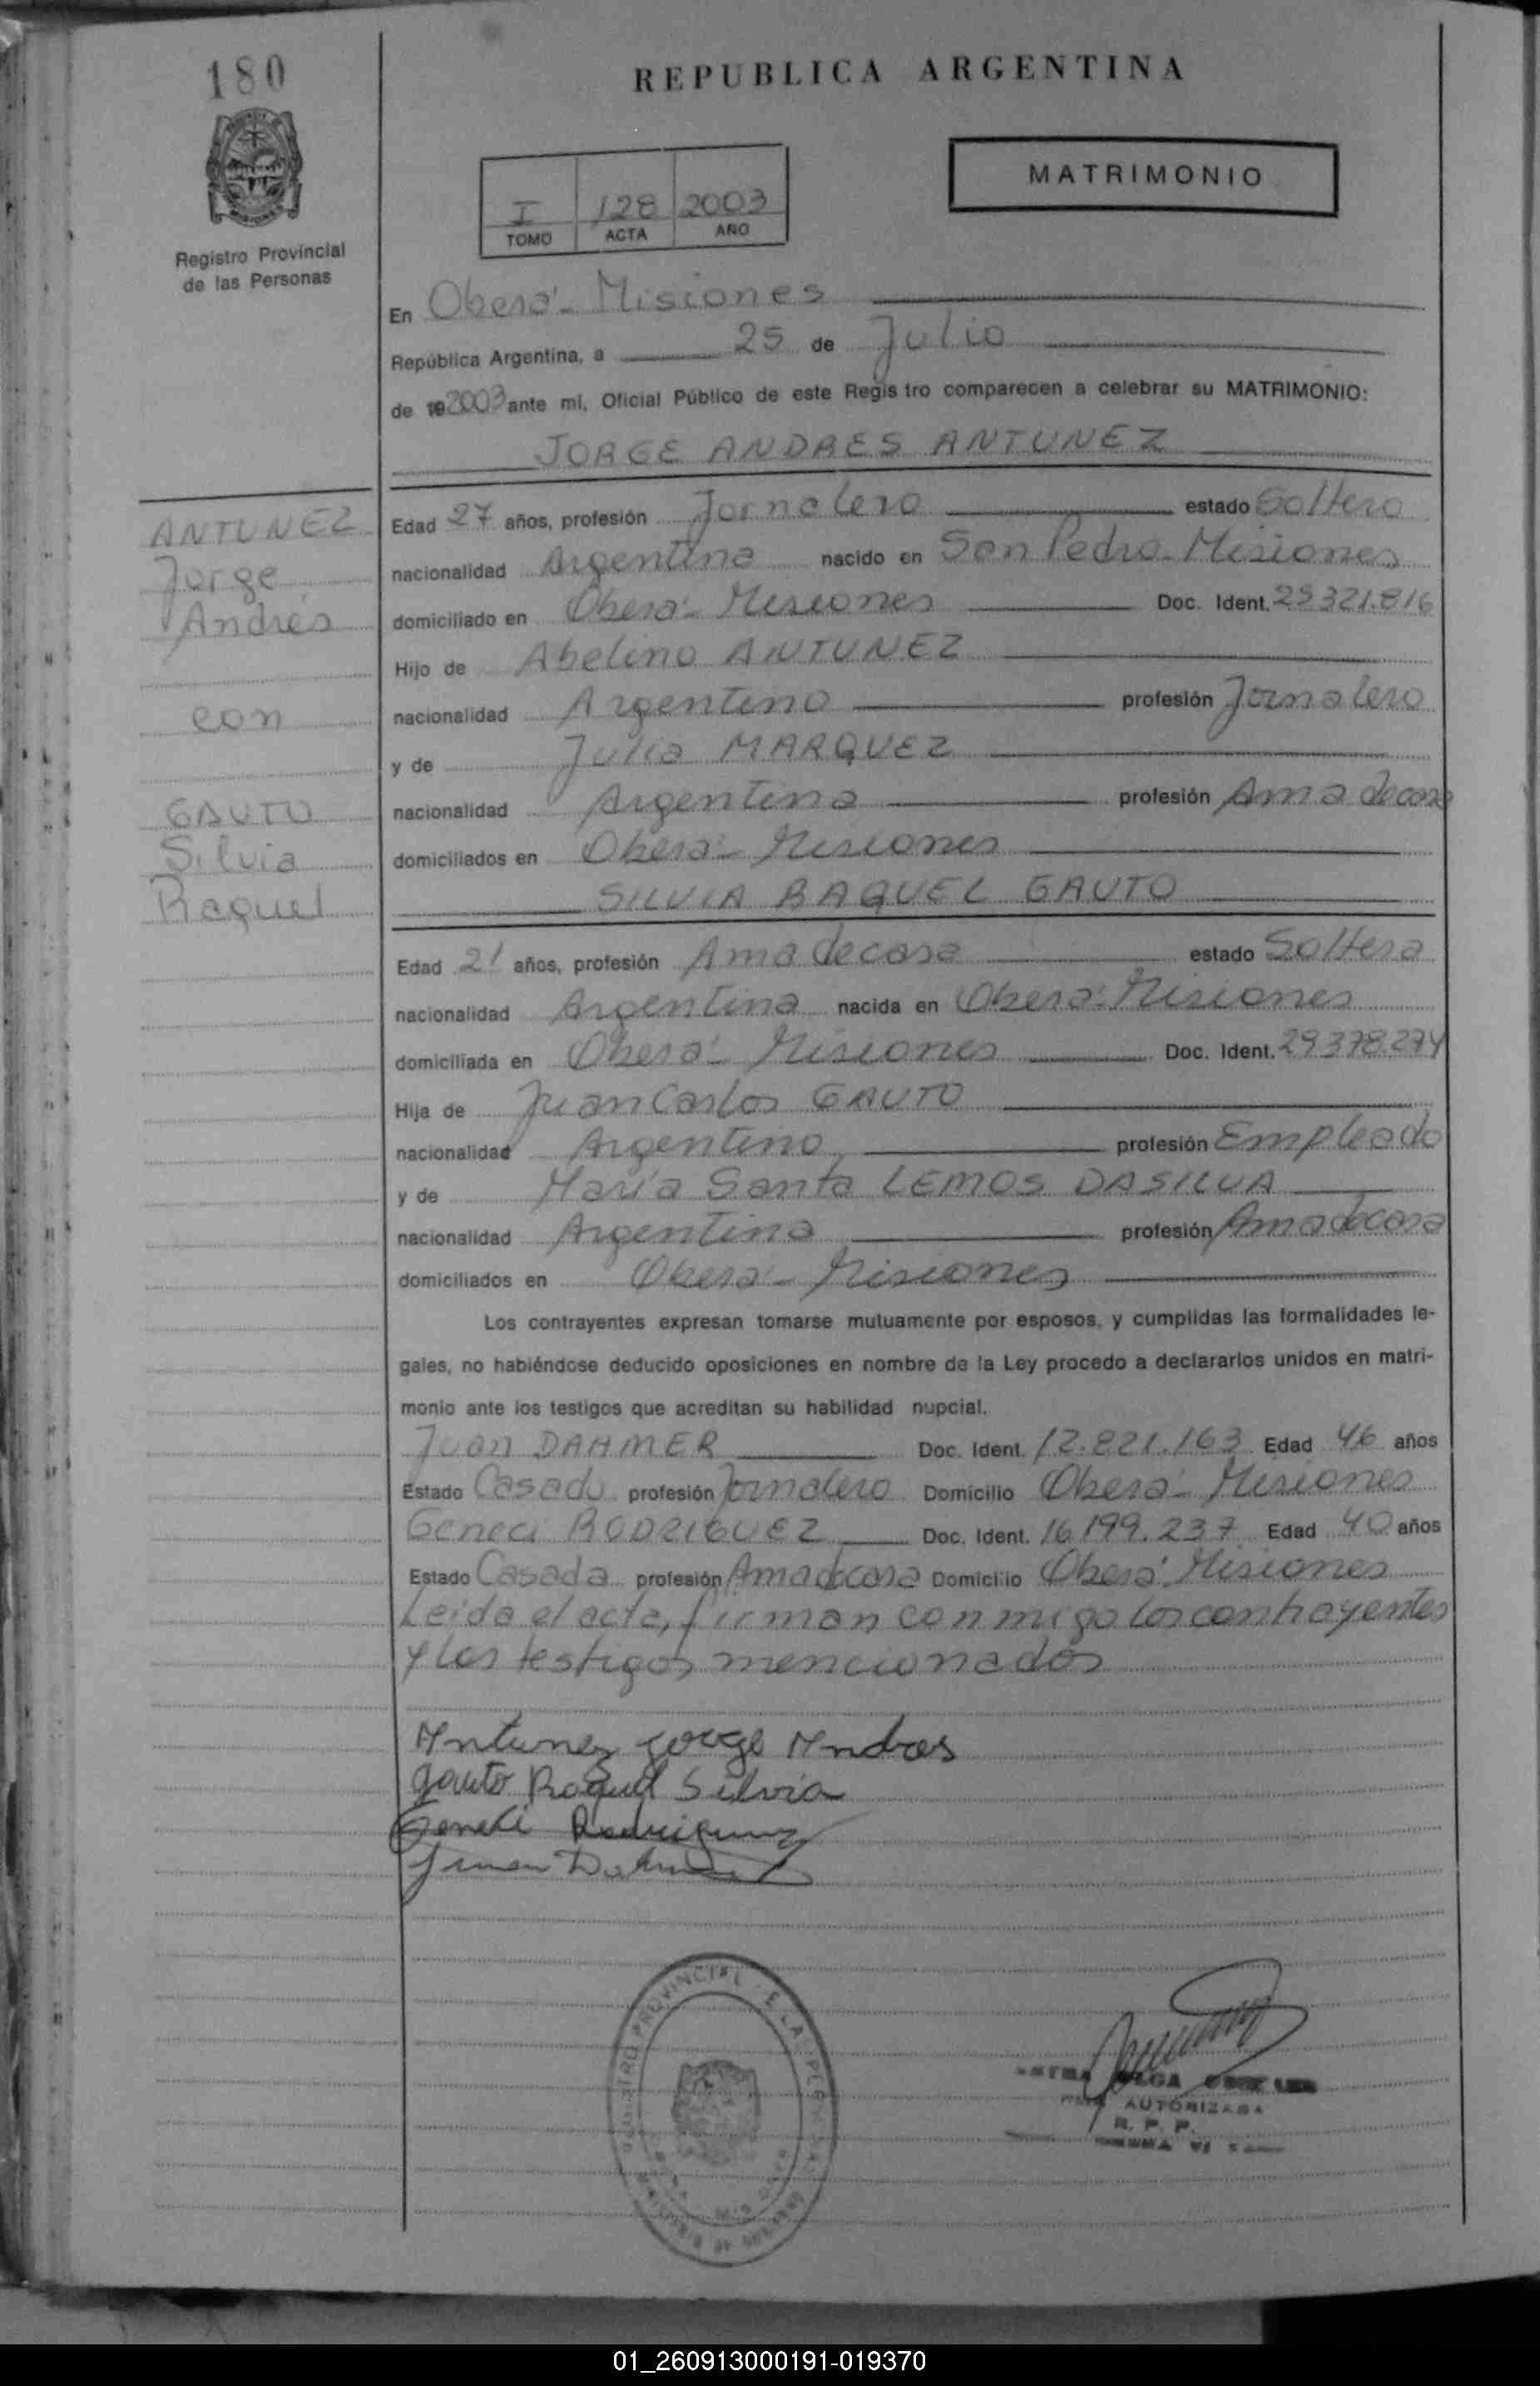 180
REPUBLICA ARGENTINA
MATRIMONIO
I 128 2003
TOMO ACTA AÑO
Registro Provincial
de las Personas
En Oberá - Misiones
República Argentina, a 25 de Julio
de 192003 ante mi, Oficial Público de este Regis tro comparecen a celebrar su MATRIMONIO:
JORGE ANDRES ANTUNEZ
ANTUNEZ
Jorge
Andrés
con
GAUTO
Silvia
Raquel
Edad 27 años, profesión Jornalero estado Soltero
nacionalidad Argentina nacido en San Pedro - Misiones
domiciliado en Oberá - Misiones Doc. Ident. 25321.816
Hijo de Abelino ANTUNEZ
nacionalidad Argentino profesión Jornalero
y de Julia MARQUEZ
nacionalidad Argentina profesión Ama de casa
domiciliados en Oberá - Misiones
SILVIA RAQUEL GAUTO
Edad 21 años, profesión Ama de casa estado Soltera
nacionalidad Argentina nacida en Oberá - Misiones
domiciliada en Oberá - Misiones Doc. Ident. 29.378.274
Hija de Juan Carlos GAUTO
nacionalidad Argentino profesión Empleado
y de María Santa LEMOS DASILVA
nacionalidad Argentina profesión Ama de casa
domiciliados en Oberá - Misiones
Los contrayentes expresan tomarse mutuamente por esposos, y cumplidas las formalidades le-
gales, no habiéndose deducido oposiciones en nombre de la Ley procedo a declararlos unidos en matri-
monio ante los testigos que acreditan su habilidad nupcial.
Juan DAHMER Doc. Ident. 12.821.163 Edad 46 años
Estado Casado profesión Jornalero Domicilio Oberá - Misiones
Geneci RODRIGUEZ Doc. Ident. 16.199.237 Edad 40 años
Estado Casada profesión Ama de casa Domicilio Oberá - Misiones
Leida el acta, firman conmigo los contrayentes
y los testigos mencionados
Antunez Jorge Andres
Gauto Raquel Silvia
Geneci Rodriguez
Juan Dahmer
AUTORIZADA
R. P. P.
01_260913000191-019370